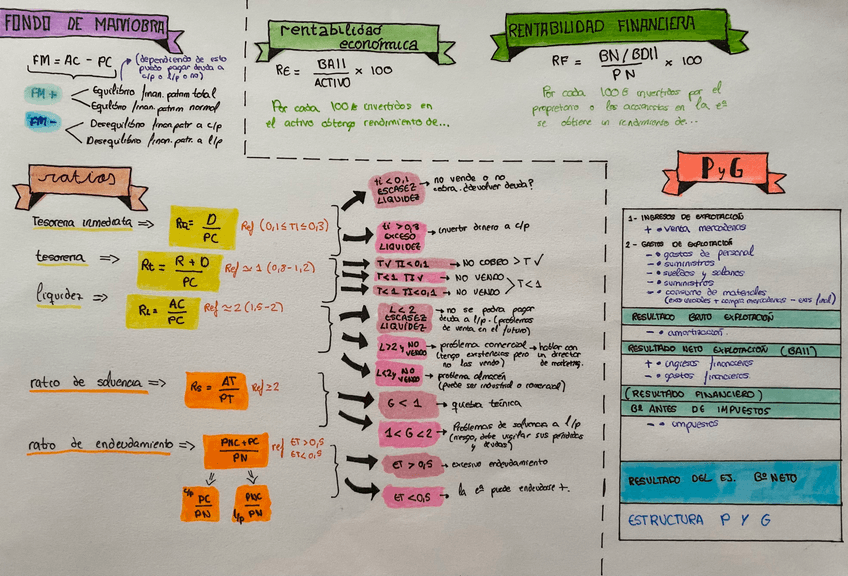 FONDO DE MANIOBRA
FM = AC - PC
(dependiendo de esto
puedo pagar deuda a
c/p o l/p o no)
FM + Equilibrio finan. patrim total
Equilibrio finan. patrim normal
FM - Desequilibrio finan. patr a c/p
Desequilibrio finan. patr. a l/p
rentabilidad
económica
RE = BAII / ACTIVO × 100
Por cada 100€ invertidos en
el activo obtengo rendimiento de...
RENTABILIDAD FINANCIERA
RF = BN/BDII / PN × 100
Por cada 100€ invertidos por el
propietario o los accionistas en la eª
se obtiene un rendimiento de...
ratios
Tesorería inmediata => D / PC Ref (0,1≤TI≤0,3)
tesorería => Rt = R + D / PC Ref ≃ 1 (0,8-1,2)
liquidez => RL = AC / PC Ref ≃ 2 (1,5-2)
ratio de solvencia => Rs = AT / PT Ref ≥ 2
ratio de endeudamiento => PNC+PC / PN ref ET>0,5
ET<0,5
c/p PC / PN
l/p PNC / PN
ti < 0,1
ESCASEZ
LIQUIDEZ
→ no vende o no
cobra. ¿devolver deuda?
ti > 0,3
EXCESO
LIQUIDEZ
→ invertir dinero a c/p
T√ TI<0,1 → NO COBRO > T√
T<1 TI√ → NO VENDO
T<1 TI<0,1 → NO VENDO > T<1
L < 2
ESCASEZ
LIQUIDEZ
→ no se podría pagar
deuda a l/p. (problemas
de venta en el futuro)
L>2 y NO
VENDO
→ problema comercial → hablar con
(tengo existencias pero un director
no las vendo) de marketing.
L<2 y NO
VENDO
→ problema almacén
(puede ser industrial o comercial)
G < 1 → quiebra técnica
1 < G < 2 → Problemas de solvencia a l/p
(riesgo, debe vigilar sus pérdidas
y deudas)
ET > 0,5 → excesivo endeudamiento
ET < 0,5 → la eª puede endeudarse +.
P y G
1- INGRESOS DE EXPLOTACIÓN
+ • venta mercaderías
2- GASTOS DE EXPLOTACIÓN
- • gastos de personal
- • suministros
- • sueldos y salarios
- • suministros
- • consumo de materiales
RESULTADO BRUTO EXPLOTACIÓN
- • amortización.
RESULTADO NETO EXPLOTACIÓN (BAII)
+ • ingresos financieros
- • gastos financieros.
(RESULTADO FINANCIERO)
Bº ANTES DE IMPUESTOS
- • impuestos
RESULTADO DEL EJ. Bº NETO
ESTRUCTURA P Y G